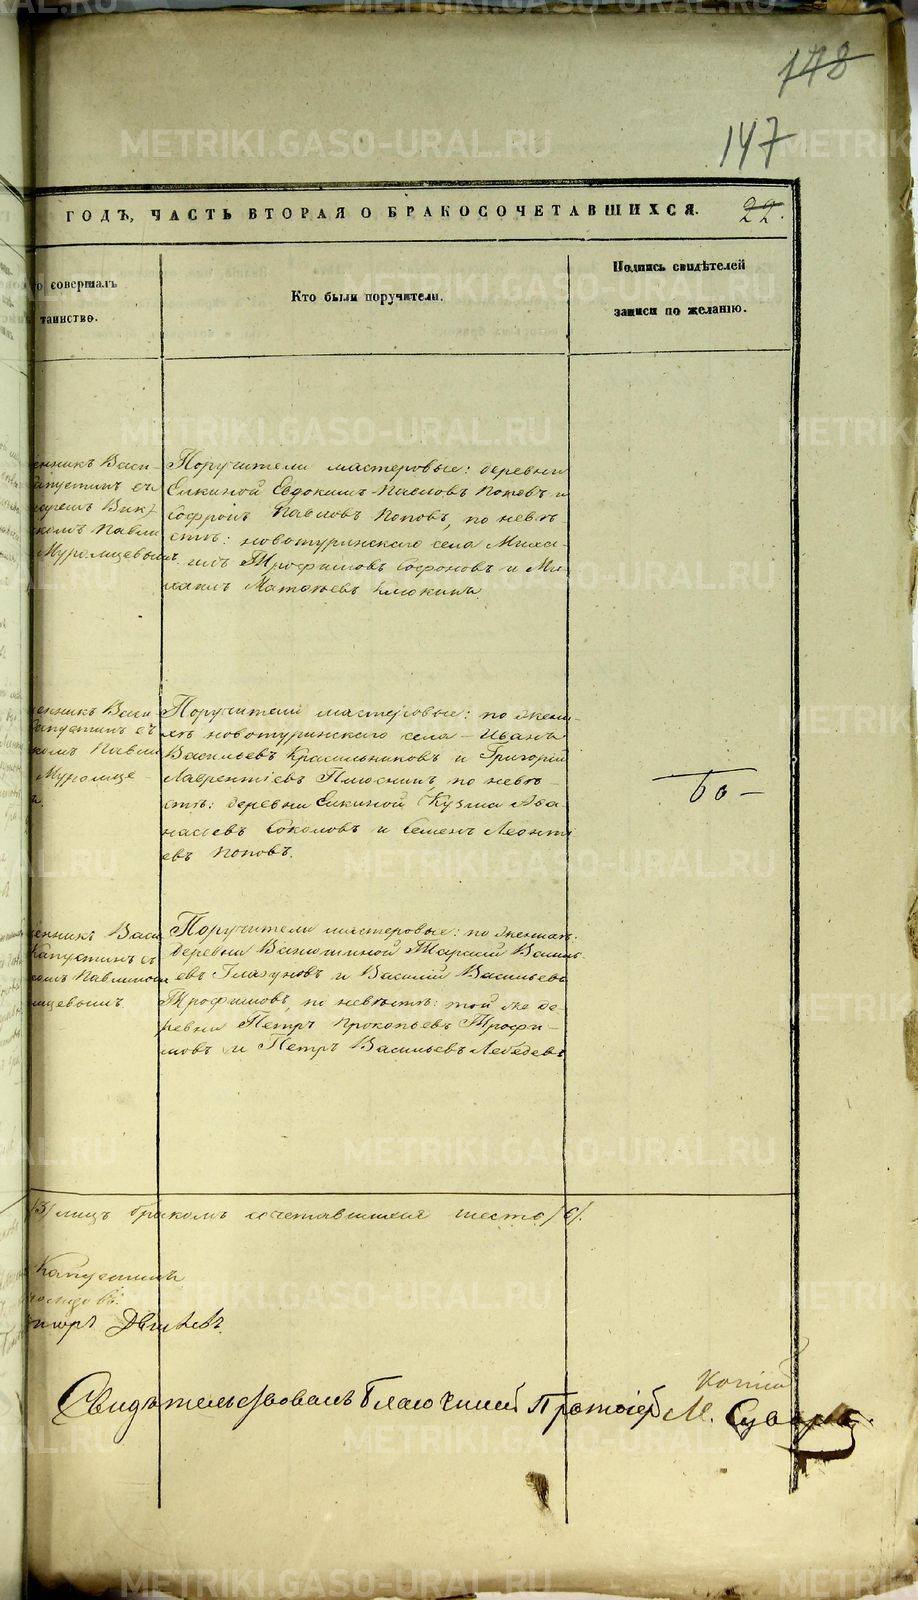 148
147
ГОДЪ, ЧАСТЬ ВТОРАЯ О БРАКОСОЧЕТАВШИХСЯ. 22.
о совершалъ
таинство.
Кто были поручители.
Подпись свидѣтелей
записи по желанію.
енникъ Васи-
Капустинъ съ
комъ Павли
Муромцевымъ
Поручители мастеровые: деревни
Елкиной Евдокимъ Павловъ Поповъ и
Софронъ Павловъ Поповъ, по невѣ
стѣ: новотуринскаго села Миха-
илъ Трофимовъ Софоновъ и Ми-
хаилъ Клюкинъ.
енникъ Васи
Капустинъ съ
комъ Павли
Муромце-
Поручители мастеровые: по жени-
хѣ новотуринскаго села Иванъ
Васильевъ Красильниковъ и Григорій
Лаврентіевъ Плюснинъ по невѣ-
стѣ: деревни Елкиной Кузма Аѳа-
насьевъ Соколовъ и Семенъ Леонті
евъ Поповъ.
енникъ Васи
Капустинъ съ
комъ Павлино
мцевымъ
Поручители мастеровые: по женихѣ:
деревни Тарасій Василь
евъ Глазуновъ и Василій Васильевъ
Трофимовъ, по невѣстѣ: той же де-
ревни Петръ Прокопьевъ Трофи-
мовъ и Петръ Васильевъ Лебедевъ
/3/ лицъ бракомъ сочетавшихся шесть /6/.
Капустинъ
Свидѣтельствовалъ Благочинный Протоіерей М.